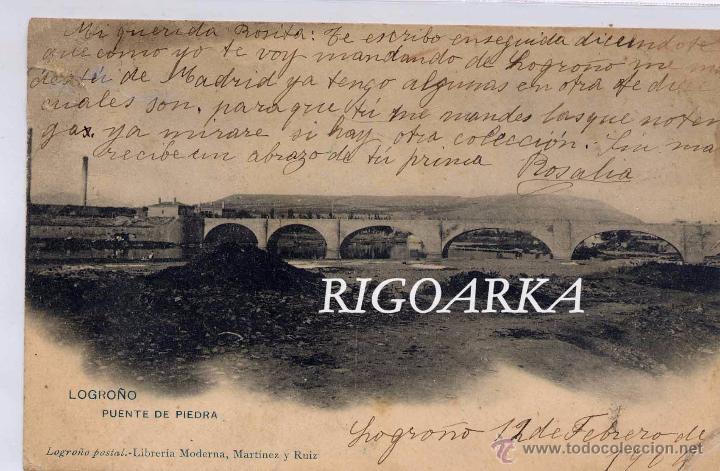 Mi querida Rosita: Te escribo enseguida diciendote
que como yo te voy mandando de Logroño me
de Madrid ya tengo algunas en otra te
cuales son, para que tú me mandes las que no ten
ga, ya mirare si hay otra colección. Sin
recibe un abrazo de tú prima
Rosalia
RIGOARKA
LOGROÑO
PUENTE DE PIEDRA
Logroño postal.-Librería Moderna, Martínez y Ruiz
Logroño 12 de Febrero de
todocoleccion